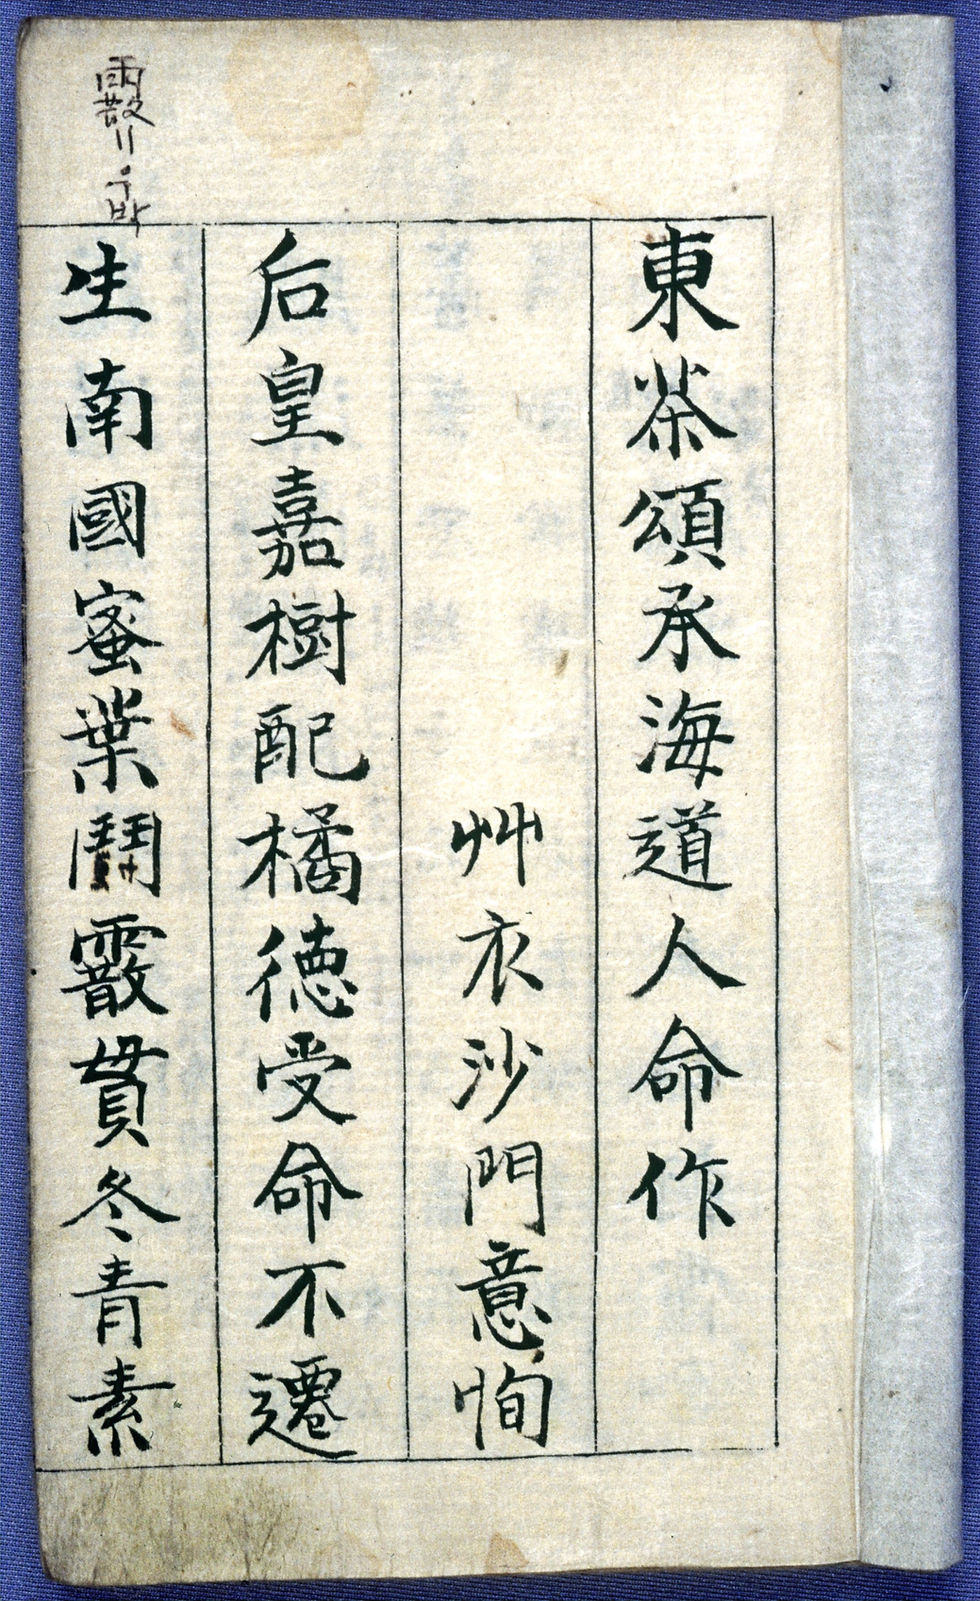 東茶頌承海道人命作
艸衣沙門意恂
后皇嘉樹配橘徳受命不遷
霰〃우박
生南國蜜葉鬪霰貫冬青素